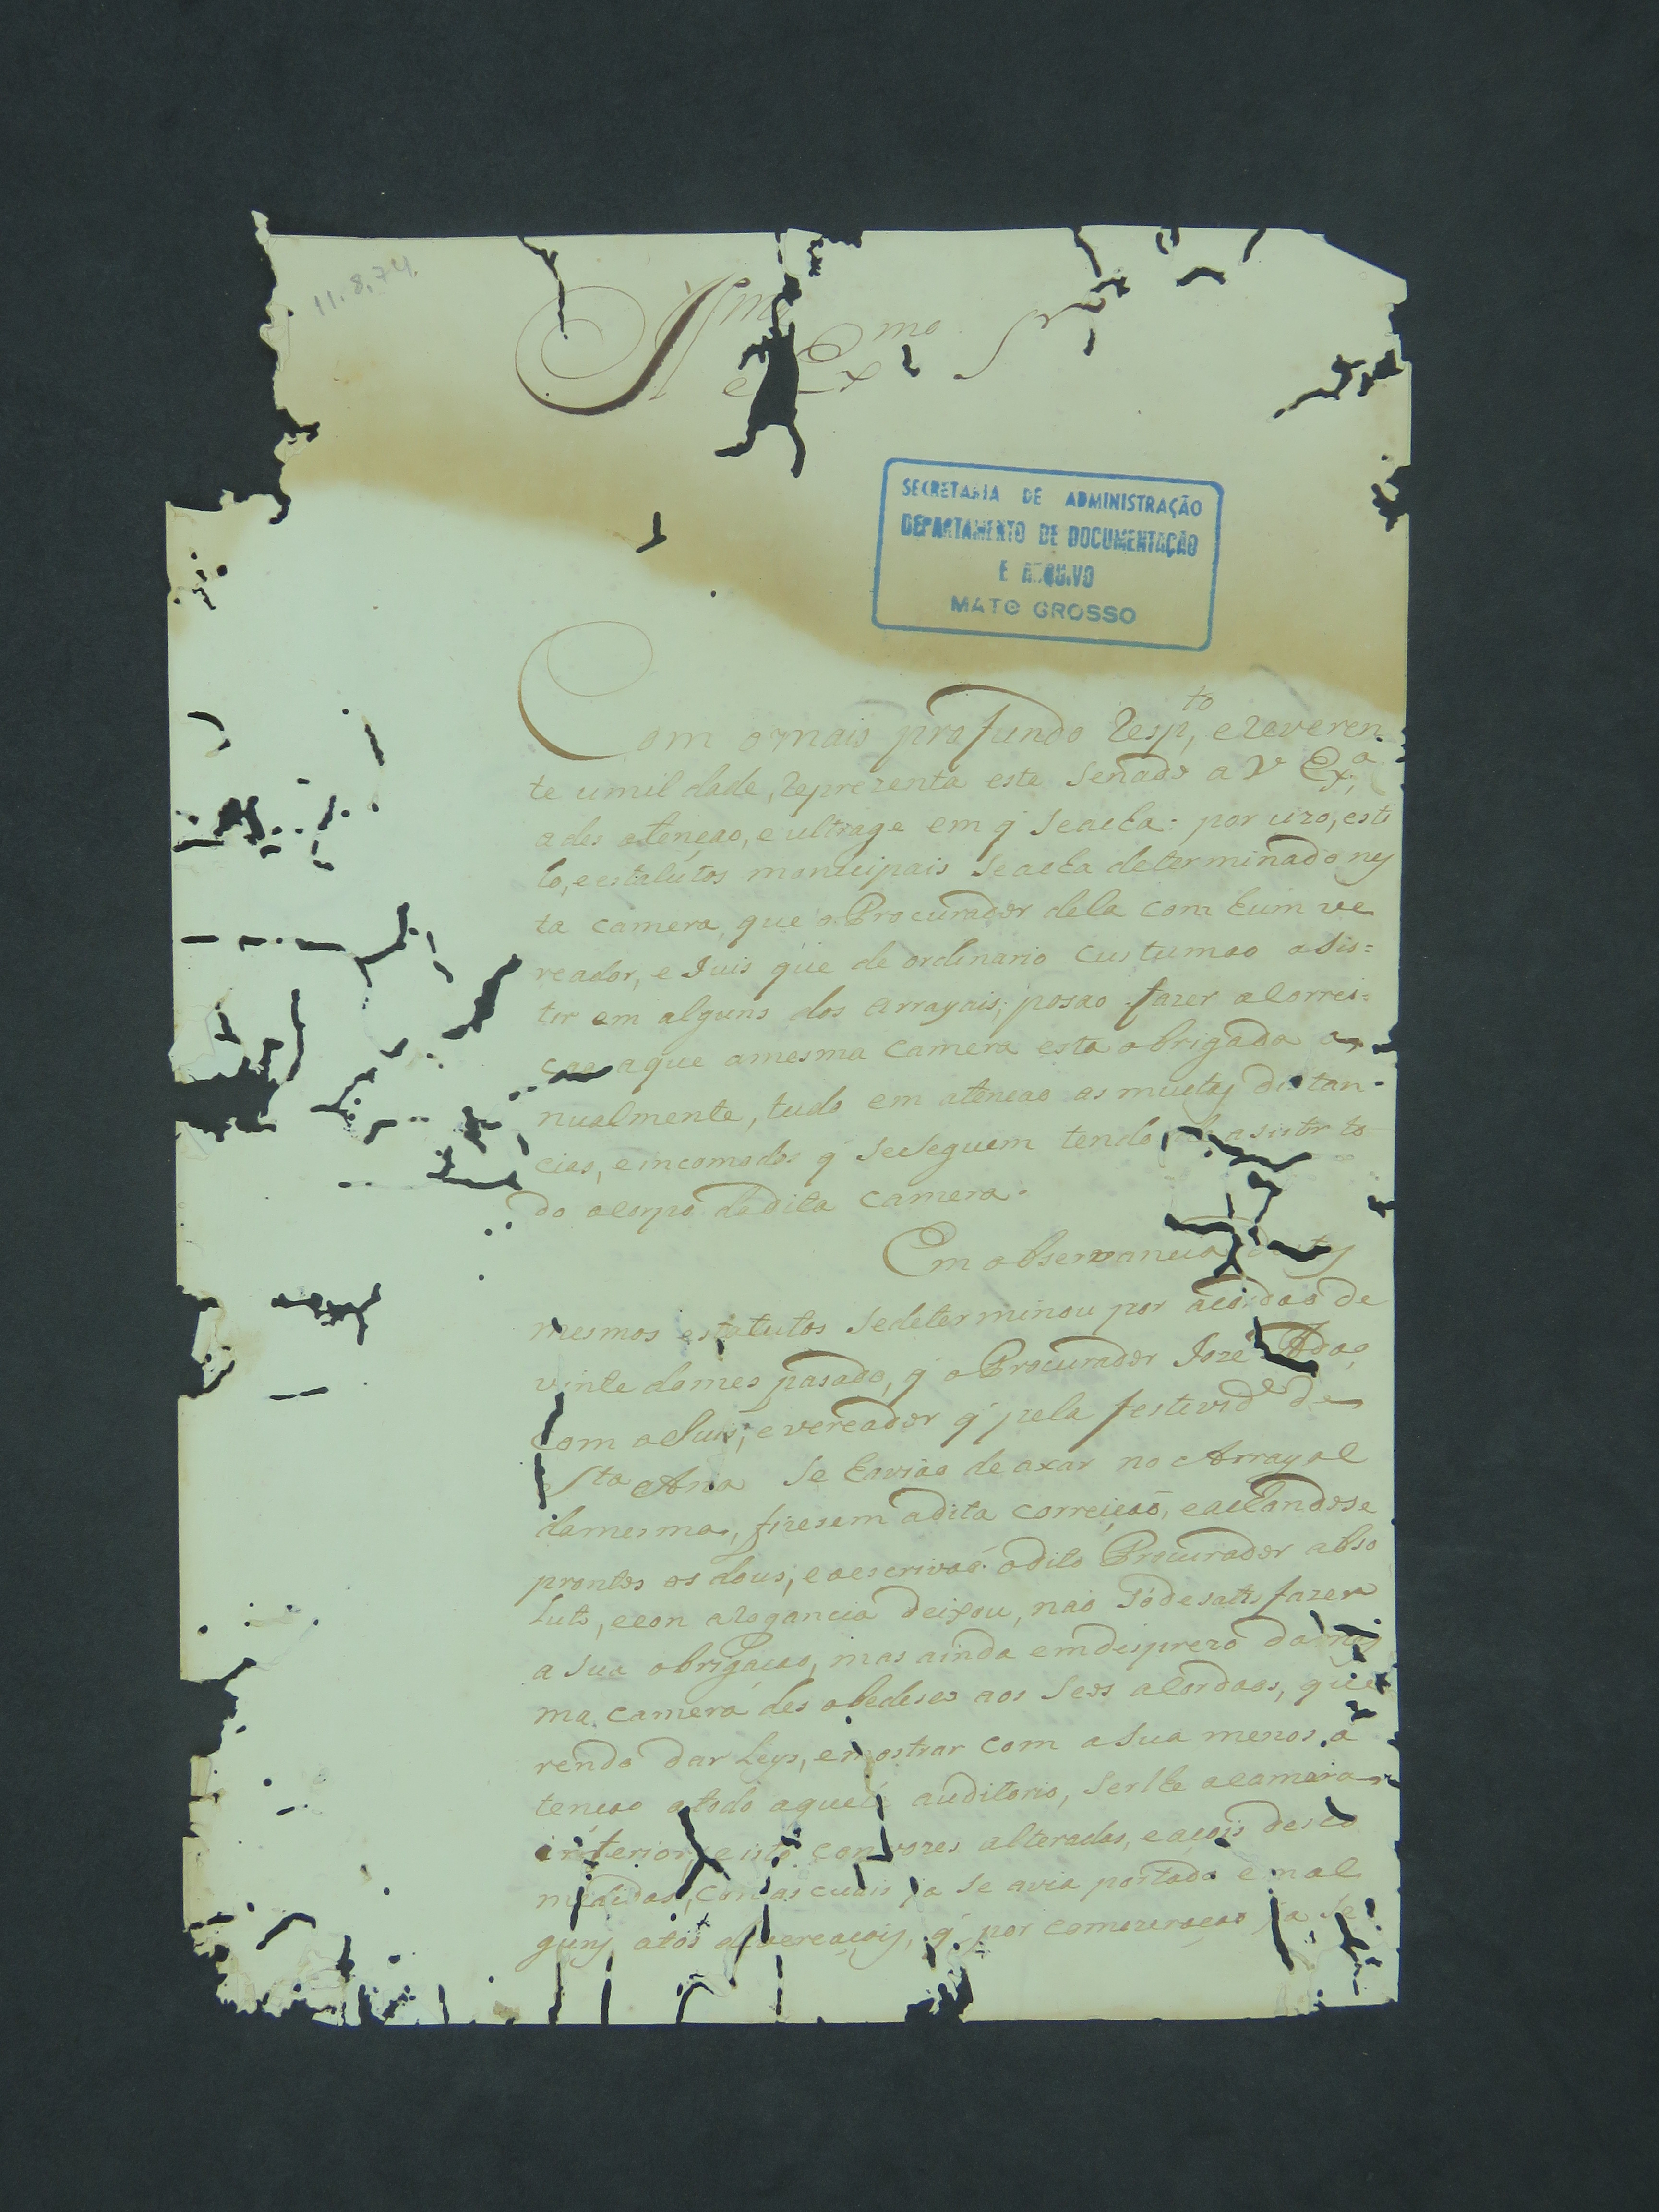 11.8.74.
Illmo
e Exmo Sr
SECRETARIA DE ADMINISTRAÇÃO
DEPARTAMENTO DE DOCUMENTAÇÃO
E ARQUIVO
MATO GROSSO
Com o mais profundo Resp,to e reveren
te umildade, Reprezenta este Senado a V Exa,
a des atençao, e ultrage em q' Seacha: por uzo, esti
lo, e estatutos monicipais Seacha determinado nes
ta camera, que o Procurador dela com huim ve
reador, e Juis que de ordinario custumao asis=
tir em alguns dos arrayais, posao fazer a Correi=
çao aque amesma camera esta obrigada an
nualmente, tudo em atencao as muitas distan-
cias, e incomodos q' SeSeguem tendo asistir to
do a Corpo daDita Camera.
Em observancia destes
mesmos estatutos Sedeterminou por acordao de
vinte domes pasado, q' o Procurador Joze
com o Juis, e vereador q' pela festevide de
Sta Ana Se haviao de axar no Arrayal
damesma, fizesem adita correiçaõ, e achandose
prontos os dous, e oescrivaõ odito Procurador abso
luto, e con arogancia deixou, naõ Sódesatisfazer
a Sua obrigaçao, mas ainda emdesprezo dames
ma Camera des obedeseo aos Seos acordaos, que
rendo dar Leys, e mostrar com a Sua menos a
tençao a todo aquele auditorio, Serlhe a camara
inferior, e isto con vozes alteradas, e açois desco
medidas, con as cuais ja Se avia portado em al
guns atos de vereaçois, q' por comizeraçao ja Se